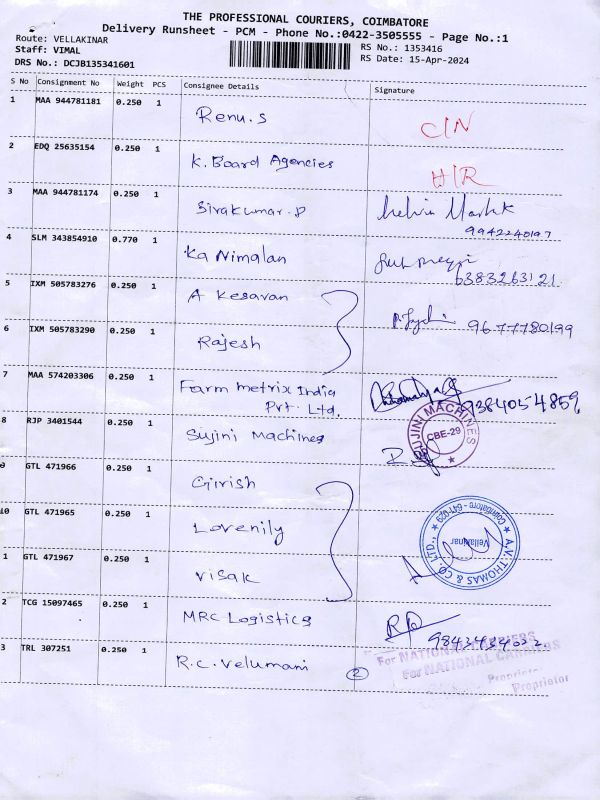 THE PROFESSIONAL COURIERS, COIMBATORE
Delivery Runsheet - PCM - Phone No.:0422-3505555 - Page No.:1
Route: VELLAKINAR
RS No.: 1353416
Staff: VIMAL
RS Date: 15-Apr-2024
DRS No.: DCJB135341601
S No Consignment No Weight PCS Consignee Details Signature
1 MAA 944781181 0.250 1 Renu.S C/N
2 EDQ 25635154 0.250 1 K. Board Agencies H/R
3 MAA 944781174 0.250 1 Sivakumar.P
9942240197
4 SLM 343854910 0.770 1 Ka Nimalan
6383263121
5 IXM 505783276 0.250 1 A Kesavan
9677780199
6 IXM 505783290 0.250 1 Rajesh
7 MAA 574203306 0.250 1 Farm metrix India
Pvt. Ltd.
9384054859
8 RJP 3401544 0.250 1 Sujini Machines
SUJINI MACHINES
CBE-29
9 GTL 471966 0.250 1 Girish
10 GTL 471965 0.250 1 Lovenily
A.V. THOMAS & CO. LTD.,
Vellakinar
Coimbatore - 641 029
1 GTL 471967 0.250 1 Visak
2 TCG 15097465 0.250 1 MRC Logistics RP
3 TRL 307251 0.250 1 R.C. Velumani 2
For NATIONAL CARRIERS
For NATIONAL CARRIERS
Proprietor
Proprietor